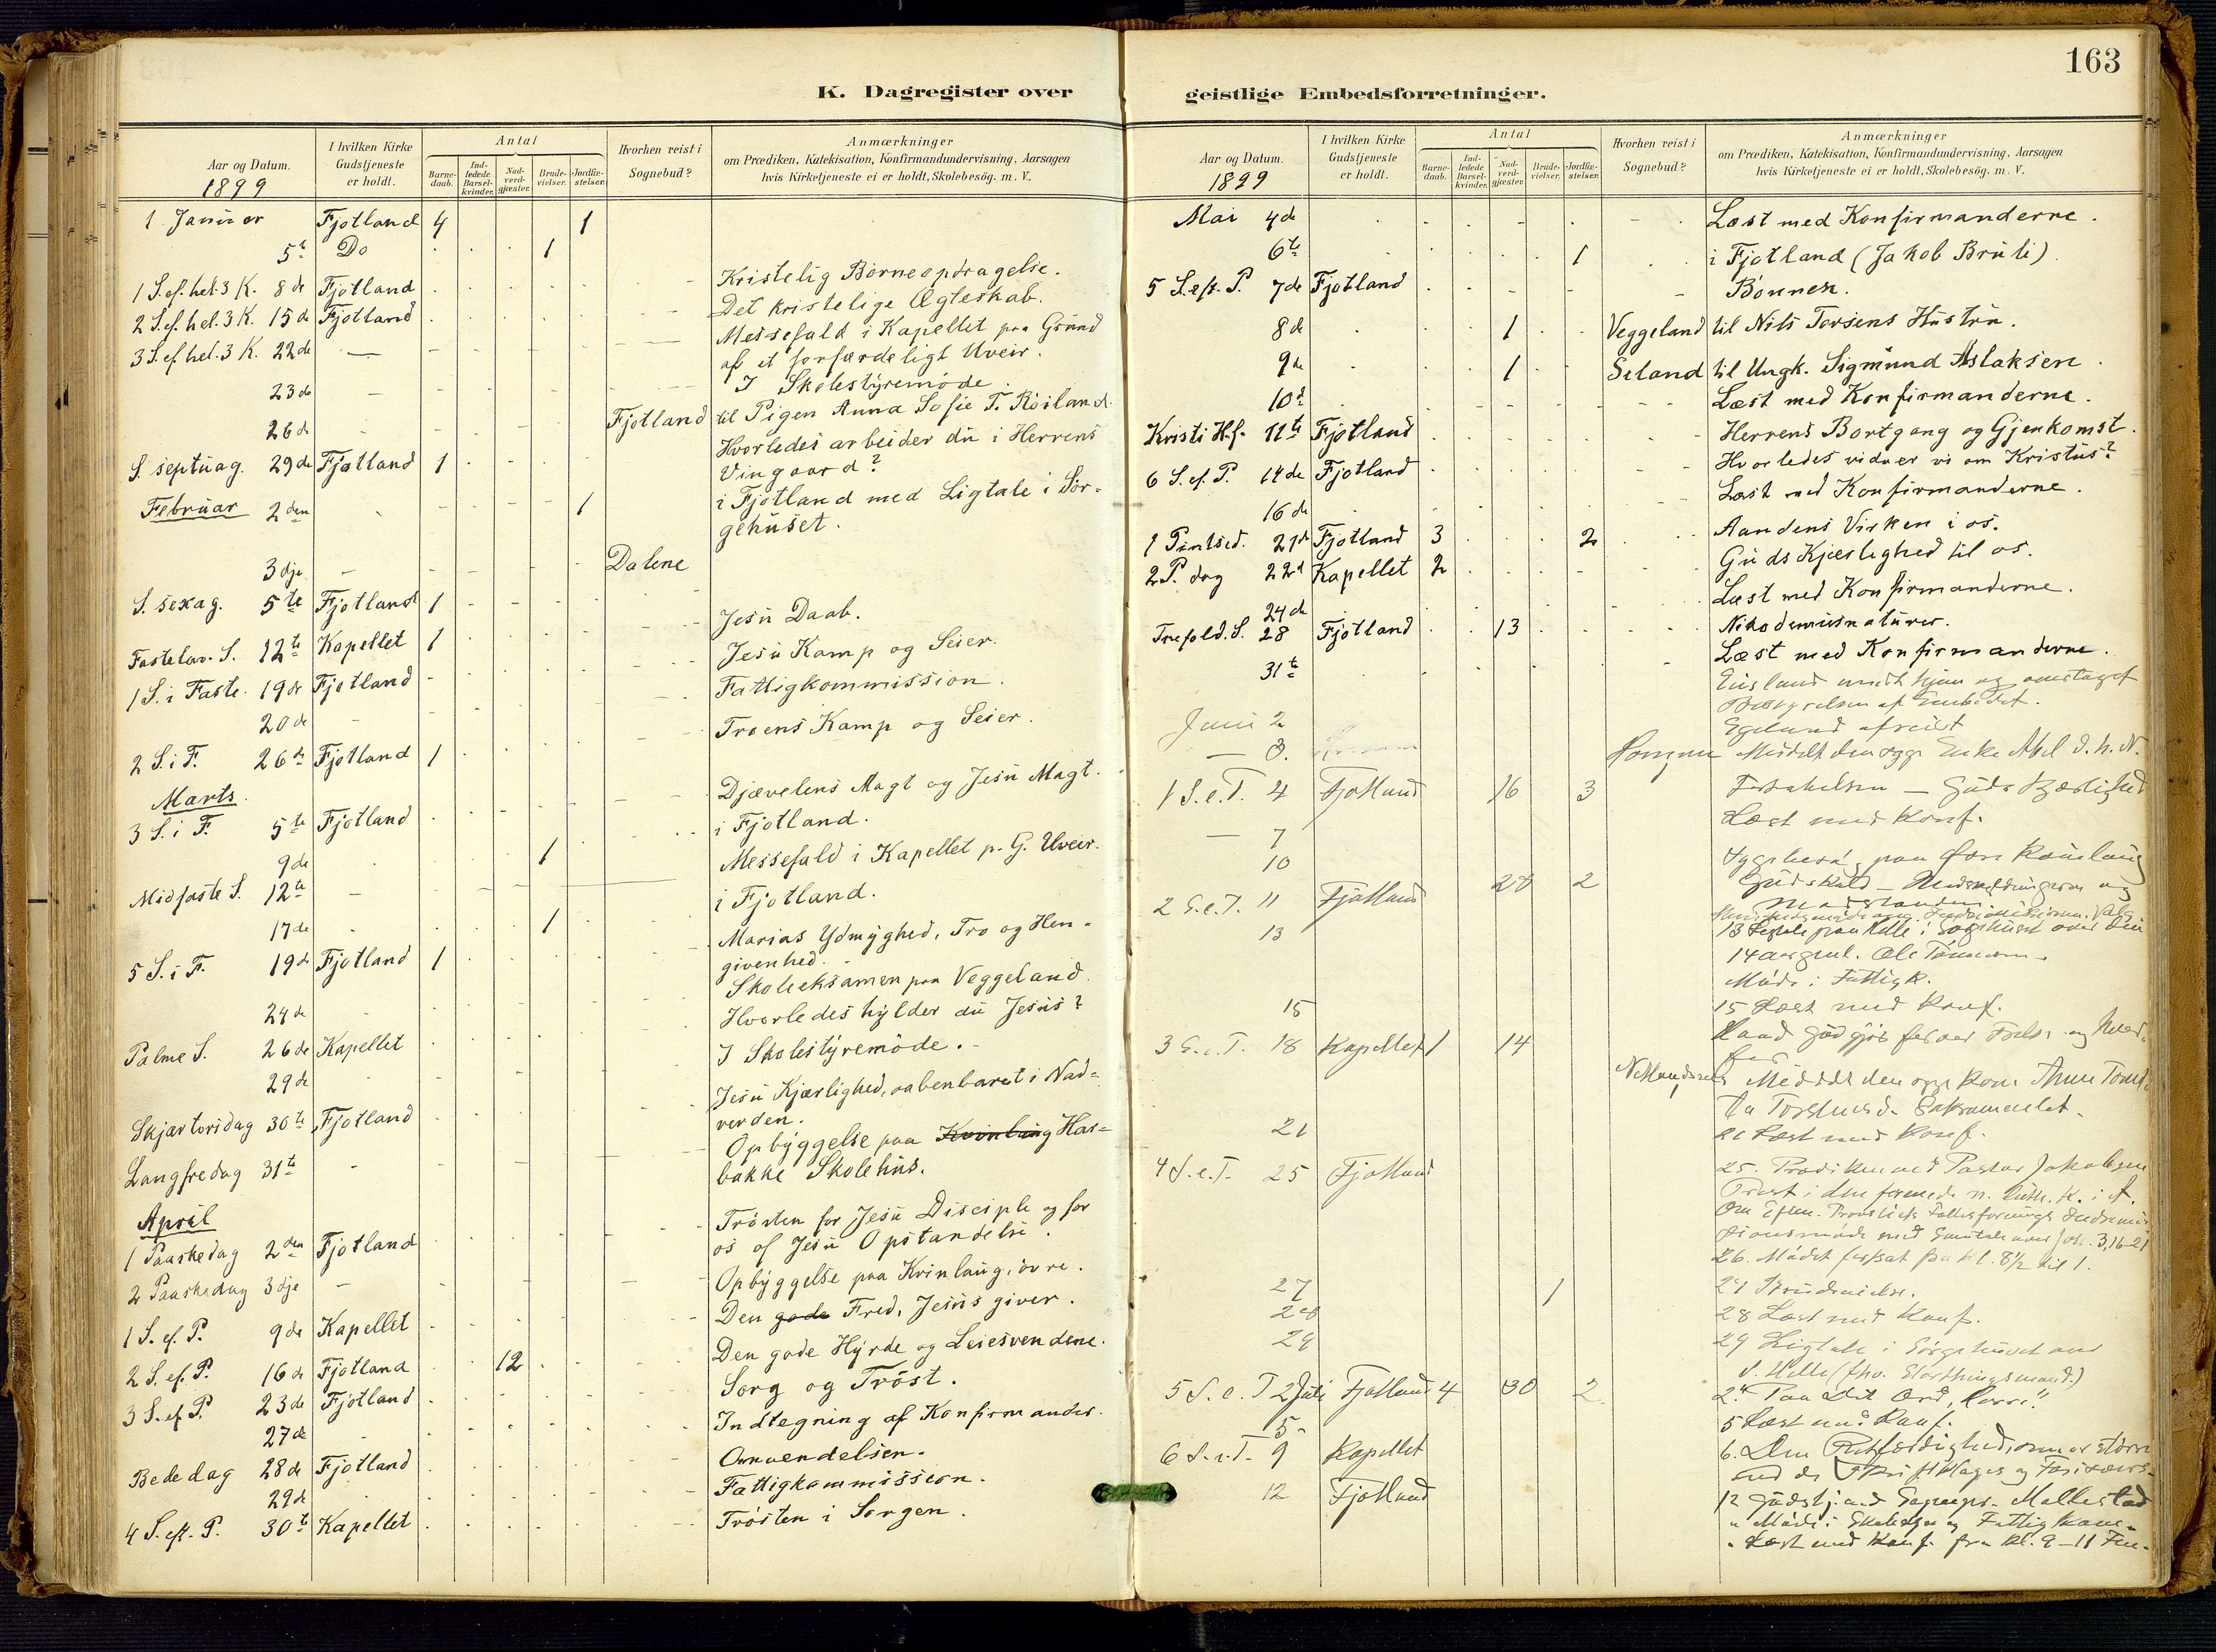 163
K. Dagregister over
geistlige Embedsforretninger.
Aar og Datum. 1899
I hvilken Kirke Gudstjeneste er holdt.
Antal
Barnedaab. Indledede Barselkvinder. Nadverdgjester. Brudevielser. Jordfæstelser.
Hvorhen reist i Sognebud?
Anmærkninger
om Prædiken, Katekisation, Konfirmandundervisning, Aarsagen
hvis Kirketjeneste ei er holdt, Skolebesøg. m. V.
1 Januar Fjotland 4 1
5te Do 1
1 S. ef. hel. 3 K. 8de Fjotland Kristelig Børneopdragelse.
2 S. ef. hel. 3 K. 15de Fjotland Det kristelige Ægteskab.
3 S. ef. hel. 3 K. 22de — Messefald i Kapellet paa Grund
af et forfærdeligt Uveir.
23de I Skolestyremøde.
26de Fjotland til Pigen Anna Sofie T. Røiland.
S. septuag. 29de Fjotland 1 Hvorledes arbeider du i Herrens
Vingaard?
Februar 2den 1 i Fjotland med Ligtale i Sør-
gehuset.
3dje Dalene
S. sexag. 5te Fjotland 1 Jesu Daab.
Fastelav. S. 12te Kapellet 1 Jesu Kamp og Seier.
1 S. i Faste. 19de Fjotland
20de Fattigkommission.
2 S. i F. 26de Fjotland 1 Troens Kamp og Seier.
Marts.
3 S. i F. 5te Fjotland Djævelens Magt og Jesu Magt.
9de 1 i Fjotland.
Midfaste S. 12te — Messefald i Kapellet p. G. Uveir.
17de 1 i Fjotland.
5 S. i F. 19de Fjotland 1 Marias Ydmyghed, Tro og Hen-
givenhed.
24de Skoleeksamen paa Veggeland.
Palme S. 26de Kapellet Hvorledes hylder du Jesus?
29de I Skolestyremøde.
Skjærtorsdag 30te Fjotland Jesu Kjærlighed, aabenbaret i Nad-
verden.
Langfredag 31te Opbyggelse paa Kvinlaug Has-
bakke Skolehus.
April
1 Paaskedag 2den Fjotland Trøsten for Jesu Disciple og for
os af Jesu Opstandelse.
2 Paaskedag 3dje — Opbyggelse paa Kvinlaug, øvre.
1 S. ef. P. 9de Kapellet Den gode Fred, Jesus giver.
2 S. ef. P. 16de Fjotland 12 Den gode Hyrde og Leiesvendene.
3 S. ef. P. 23de Fjotland Sorg og Trøst.
27de Indtegning af Konfirmander.
Bededag 28de Fjotland Omvendelsen.
29de Fattigkommission.
4 S. eft. P. 30te Kapellet Trøsten i Sorgen.
Aar og Datum. 1899
I hvilken Kirke Gudstjeneste er holdt.
Antal
Barnedaab. Indledede Barselkvinder. Nadverdgjester. Brudevielser. Jordfæstelser.
Hvorhen reist i Sognebud?
Anmærkninger
om Prædiken, Katekisation, Konfirmandundervisning, Aarsagen
hvis Kirketjeneste ei er holdt, Skolebesøg. m. V.
Mai 4de Læst med Konfirmanderne.
6te 1 i Fjotland (Jakob Bruli).
5 S. eft. P. 7de Fjotland Bønnen.
8de 1 Veggeland til Nils Torsens Hustru.
9de 1 Seland til Ungk. Sigmund Aslaksen.
10de Læst med Konfirmanderne.
Kristi H.f. 11te Fjotland Herrens Bortgang og Gjenkomst.
6 S. ef. P. 14de Fjotland Hvorledes vidner vi om Kristus?
16de Læst med Konfirmanderne.
1 Pintsed. 21de Fjotland 3 2 Aandens Virken i os.
2 P. dag 22d Kapellet 2 Guds Kjærlighed til os.
24de Læst med Konfirmanderne.
Trefold. S. 28 Fjotland 13 Nikodemusnaturer.
31te Læst med Konfirmanderne.
og overtaget
af Embedet.
Juni 2 Egeland afreist
1 S. e. T. 4 Fjotland 16 3 Guds Kjærlighed
7 Læst med Konf.
10 paa Kvinlaug
2 S. e. T. 11 Fjotland 28 2
13 over den
14 aar gml. Ole
Møde i Fattigk.
15 15 Læst med Konf.
3 S. e. T. 18 Kapellet 1 14 Hvad Gud gjør
Sakramentet.
21 21 Læst med Konf.
4 S. e. T. 25 Fjotland 25. Prædiken ved Pastor Jakobsen
Præst i den forenede n. luth. K. i A.
3,16-21
26. Mødet fortsat fra kl. 8½ til 1.
27 1 27 Brudevielse.
28 28 Læst med Konf.
29 29 Ligtale i Sørgehuset over
(fhv. Storthingsmand.)
5 S. e. T 2 Juli Fjotland 4 30 2 2. "Paa Dit Ord, Herre!"
5 5 Læst med Konf.
6 S. e. T. 9 Kapellet 6. Den Retfærdighed, som er større
end de Skriftkloges og Farisæers.
12 Fjotland 12 Gudstj. Mollestad
" Møde i og Fattigkom.
" Læst med Konf. fra kl. 9-11